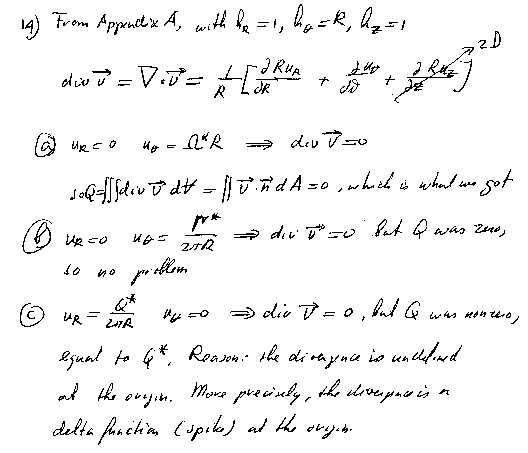 14) From Appendix A, with h_R = 1, h_θ = R, h_z = 1
div v⃗ = ∇·v⃗ = 1/R [ ∂Ru_R/∂R + ∂u_θ/∂θ + ∂Ru_z/∂z ] 2D
(a) u_R = 0 u_θ = Ω*R ⟹ div v⃗ = 0
so Q = ∭ div v⃗ dV = ∬ v⃗·n⃗ dA = 0, which is what we got
(b) u_R = 0 u_θ = Γ*/2πR ⟹ div v⃗ = 0 but Q was zero,
so no problem
(c) u_R = Q*/2πR u_θ = 0 ⟹ div v⃗ = 0, but Q was nonzero,
equal to Q*. Reason: the divergence is undefined
at the origin. More precisely, the divergence is a
delta function (spike) at the origin.